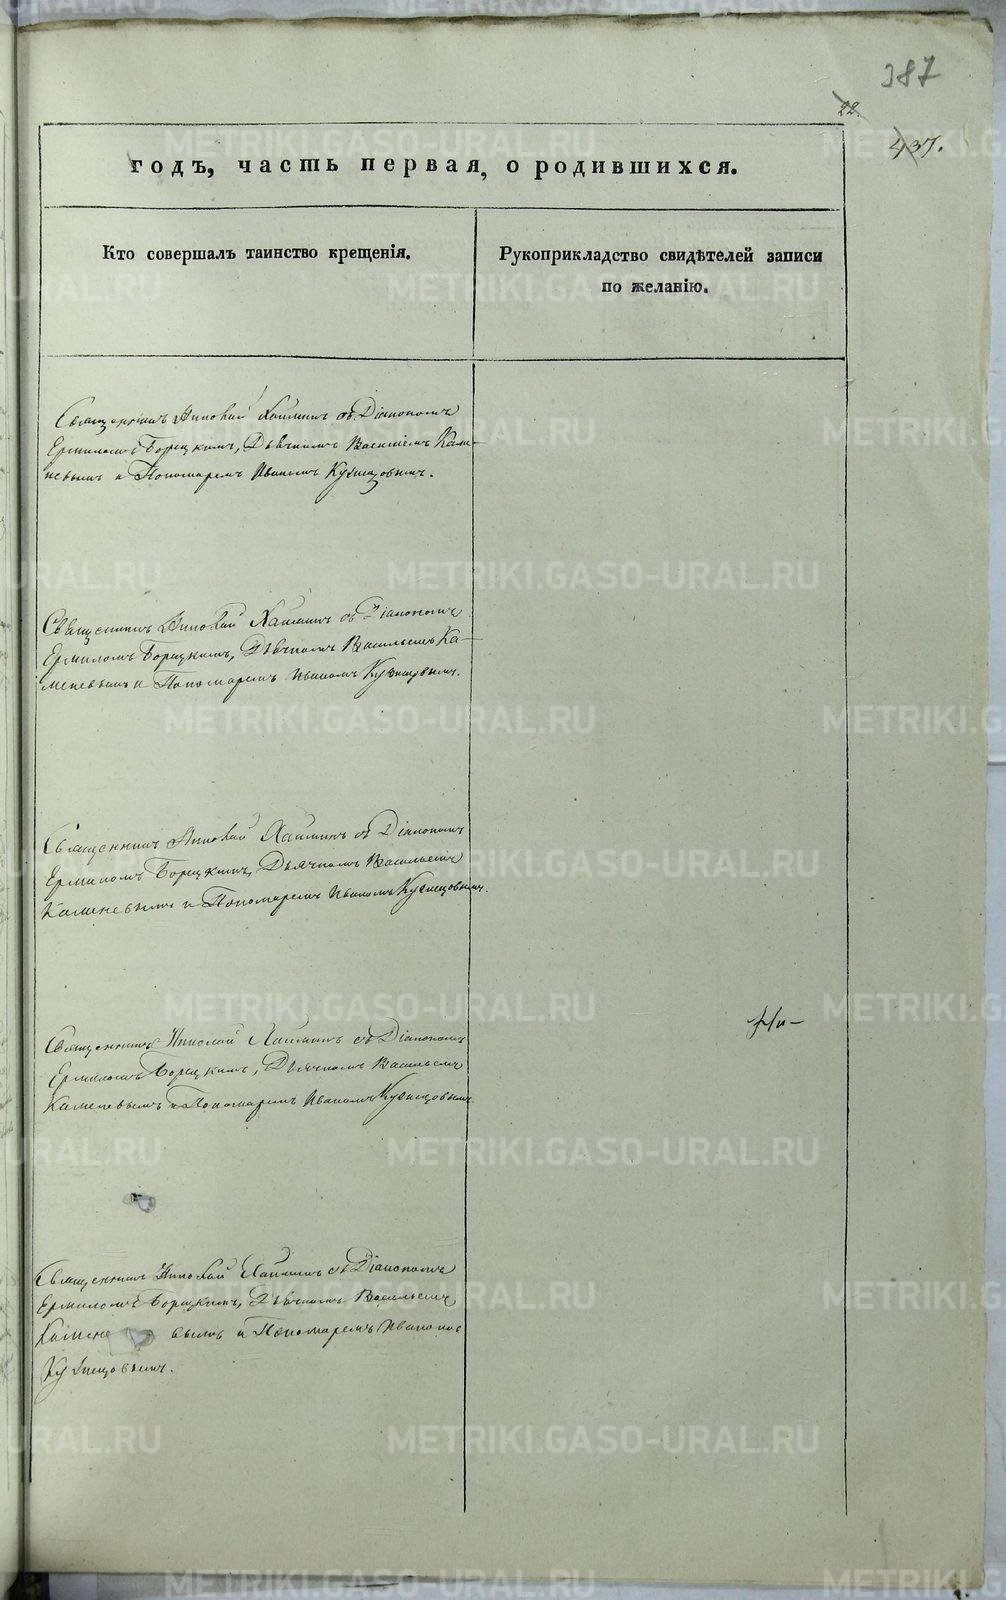 387
22.
437.
годъ, часть первая, о родившихся.
Кто совершалъ таинство крещенія.
Рукоприкладство свидѣтелей записи
по желанію.
Священникъ Николай Хаймин съ Діакономъ
Ермиломъ Борецкимъ, Дьячкомъ Василіемъ Каме-
невымъ и Пономаремъ Иваномъ Кузнецовымъ.
Священникъ Николай Хаймин съ Діакономъ
Ермиломъ Борецкимъ, Дьячкомъ Васильемъ Ка-
меневымъ и Пономаремъ Иваномъ Кузнецовымъ.
Священникъ Николай Хаймин съ Діакономъ
Ермиломъ Борецкимъ, Дьячкомъ Васильемъ
Каменевымъ и Пономаремъ Иваномъ Кузнецовымъ.
Священникъ Николай Хаймин съ Діакономъ
Ермиломъ Борецкимъ, Дьячкомъ Васильемъ
Каменевымъ и Пономаремъ Иваномъ Кузнецовымъ
Священникъ Николай Хаймин съ Діакономъ
Ермиломъ Борецкимъ, Дьячкомъ Васильемъ
Камене вымъ и Пономаремъ Иваномъ
Кузнецовымъ.
METRIKI.GASO-URAL.RU